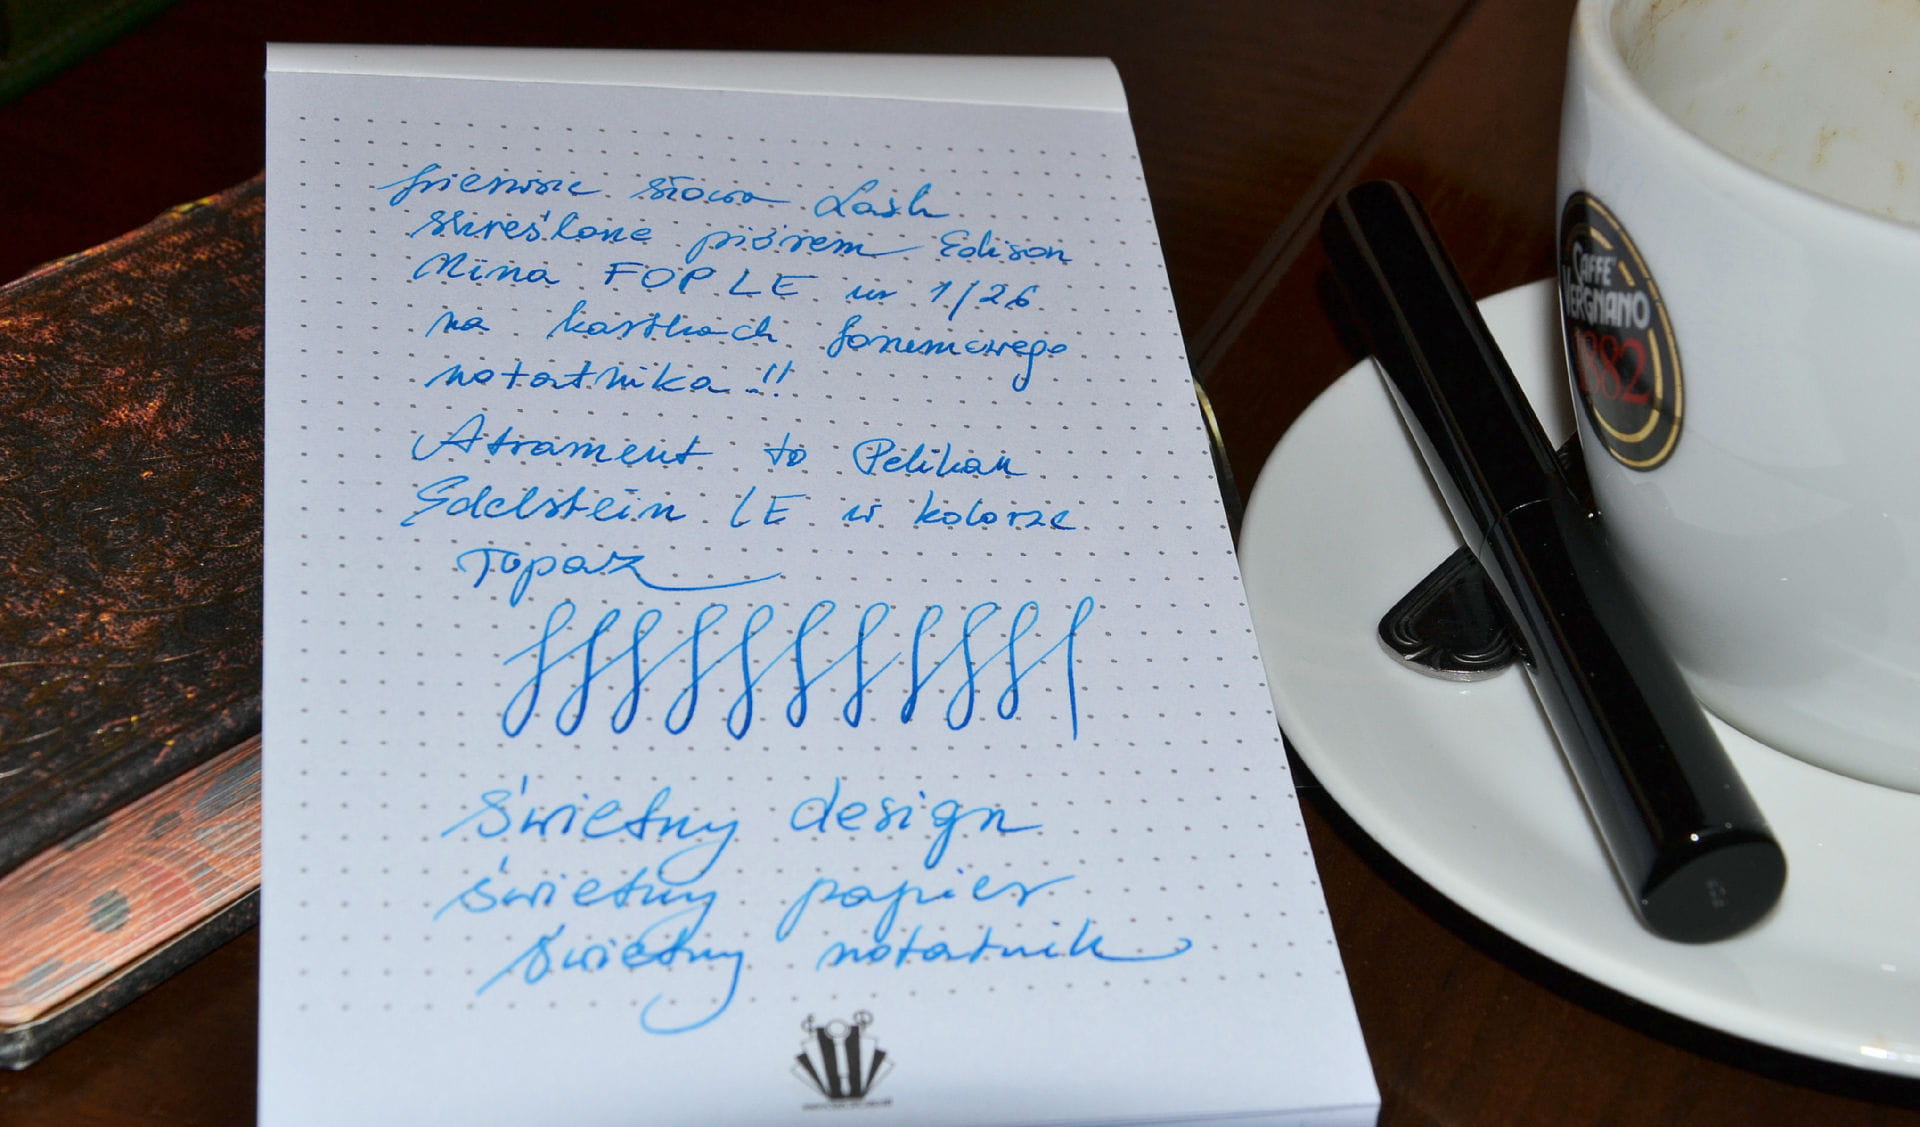 pierwsze słowa
skreślone piórem Edison
Nina FOP LE nr 1/26
na kartkach forumowego
notatnika!!
Atrament to Pelikan
Edelstein LE w kolorze
Topaz
Świetny design
świetny papier
świetny notatnik
CAFFÈ
VERGNANO
1882